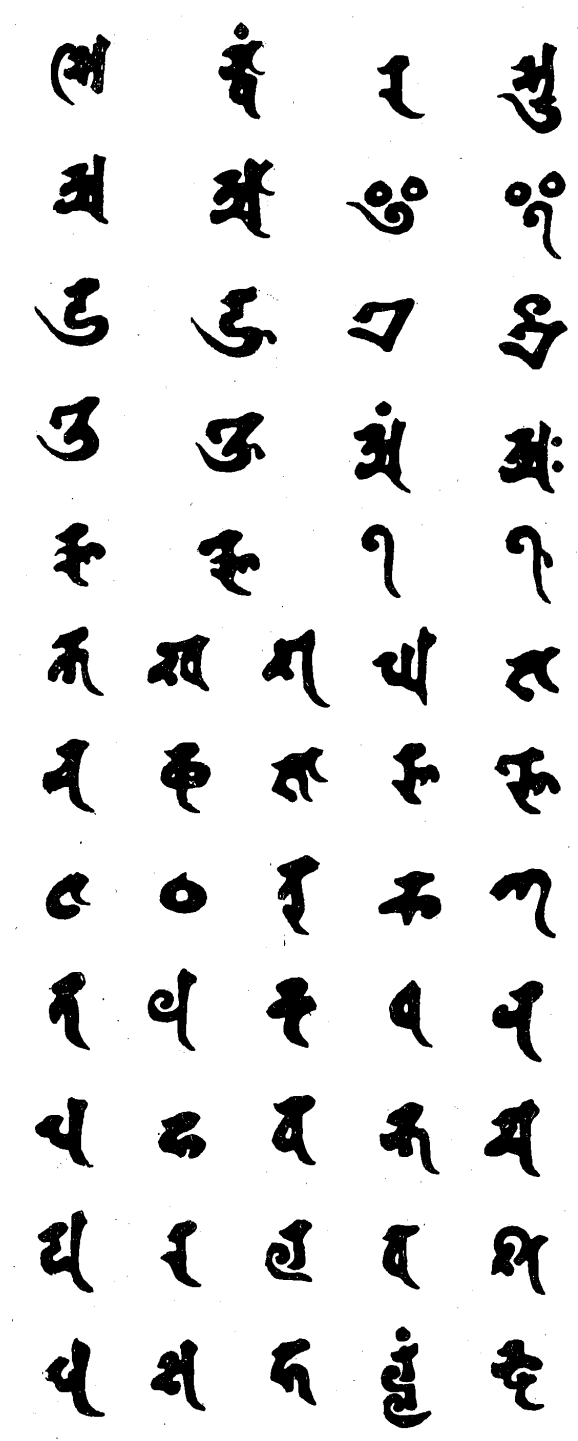 𑖭𑖰 𑖟𑖿𑖠𑖽 𑖨 𑖭𑖿𑖝𑖲
𑖀 𑖁 𑖂 𑖃
𑖄 𑖅 𑖊 𑖋
𑖌 𑖍 𑖀𑖽 𑖀𑖾
𑖆 𑖇 𑖈 𑖉
𑖎 𑖏 𑖐 𑖑 𑖒
𑖓 𑖔 𑖕 𑖖 𑖗
𑖘 𑖙 𑖚 𑖛 𑖜
𑖝 𑖞 𑖟 𑖠 𑖡
𑖢 𑖣 𑖤 𑖥 𑖦
𑖧 𑖨 𑖩 𑖪 𑖫
𑖬 𑖭 𑖮 𑖩𑖿𑖩𑖽 𑖎𑖿𑖬